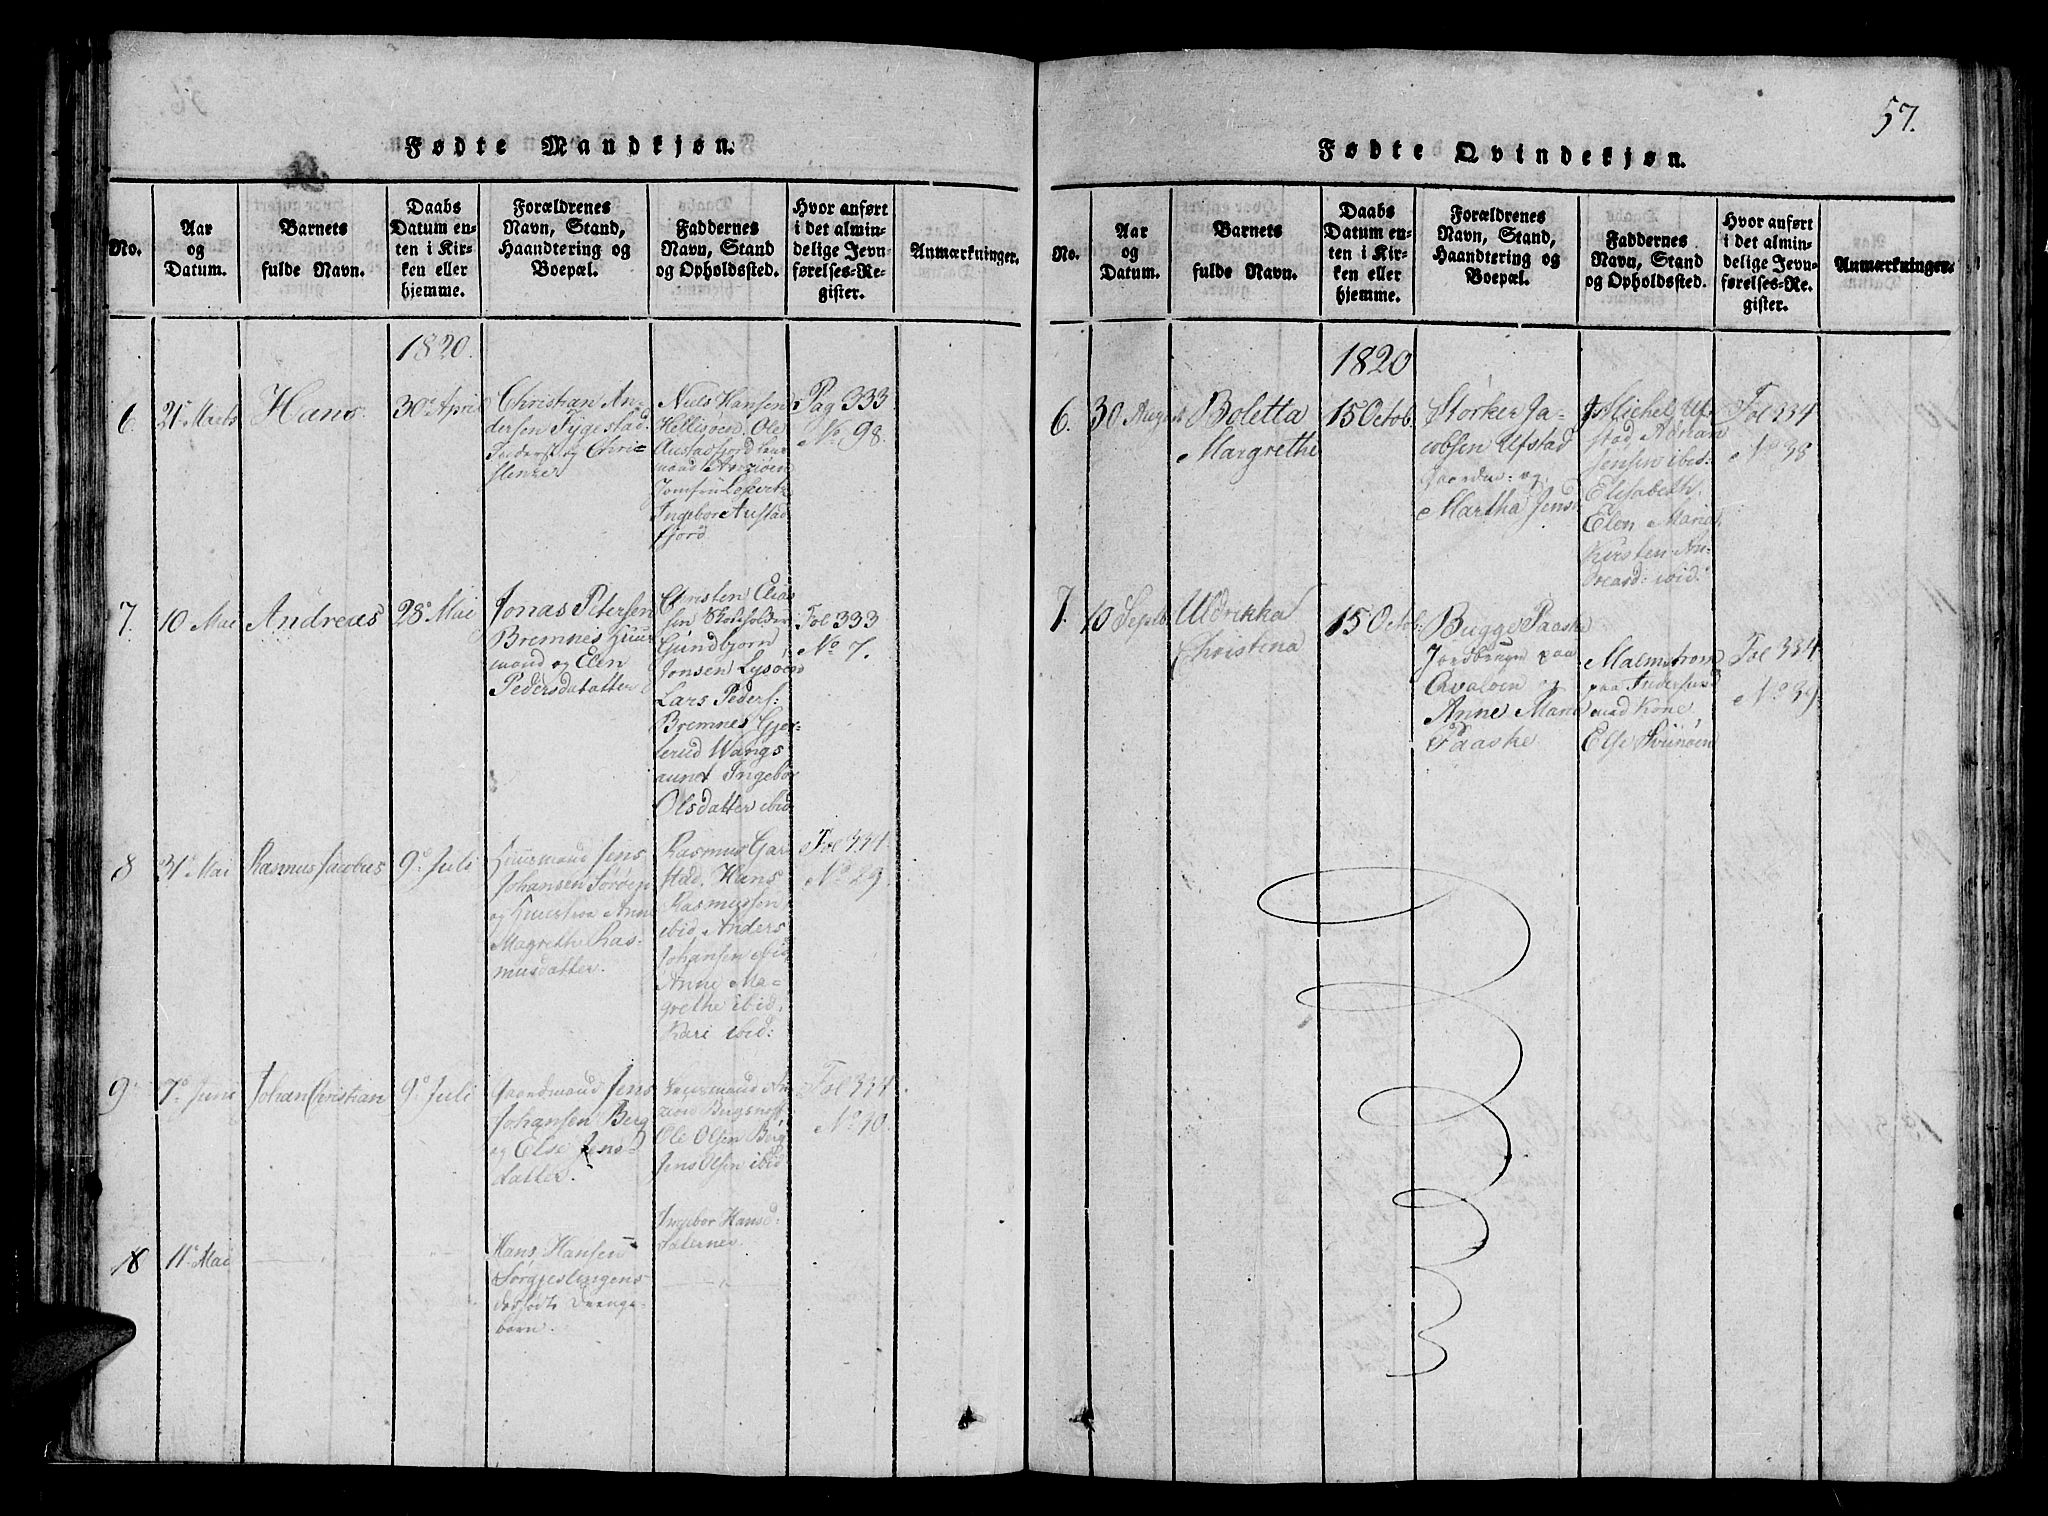 57.
Fødte Mandkjøn.
No.
Aar
og
Datum.
Barnets
fulde Navn.
Daabs
Datum en-
ten i Kir-
ken eller
hjemme.
Forældrenes
Navn, Stand,
Haandtering og
Boepæl.
Faddernes
Navn, Stand
og Opholdssted.
Hvor anført
i det almin-
delige Jevn-
førelses-Re-
gister.
Anmærkninger.
1820.
6.
21 Marts
Hans
30 April
Christian An-
dersen Tygestad
og Chri-
Niels Hansen
Hellisøen. Ole
Austadfjord
Jomfru
Ingebor Austad
fjord
Pag 333
No 98.
7.
10 Mai
Andreas
28 Mai
Jonas Petersen
Bremnes Huus
mand og Elen
Pedersdatatter
Christen Elias
sen
Gundbjørn
Jonsen Lysøen
Lars Peders:
Bremnes Gjer-
terud Wangs
aunet Ingebor
Olsdatter ibid
Fol 333
No 7.
8
31 Mai
Rasmus Jacobus
9 Juli
Huusmand Jens
Johansen Sørøen
og Huustroe Anne
Magrethe Ras-
musdatter.
Rasmus Gar
stad. Hans
Rasmussen
ibid Anders
Johansen ibid
Anne Ma-
grethe ibid.
Kari ibid:
Fol 334
No 29
9
7 Juni
Johan Christian
9 Juli
Gaardmand Jens
Johansen Berg
og Else Jens-
datter.
Ole Olsen Berg
Jens Olsen ibid
Ingebor Hansd:
Fol 334
No 30.
11 Mai
Hans Hansen
dødfødte Drenge-
barn.
Fødte Qvindekjøn.
No.
Aar
og
Datum.
Barnets
fulde Navn.
Daabs
Datum en-
ten i Kir-
ken eller
hjemme.
Forældrenes
Navn, Stand,
Haandtering og
Boepæl.
Faddernes
Navn, Stand
og Opholdssted.
Hvor anført
i det almin-
delige Jevn-
førelses-Re-
gister.
Anmærkninger.
1820
6.
30 August
Boletta
Margrethe
15 Octob.
Størker Ja-
cobsen Ufstad
og
Martha Jens
Michel Uf
stad, Adrian
Jensen ibid:
Elisabeth.
Elen Maria
Kirsten An-
dreasd: ibid:
Fol 334
No 38
7.
10 Septb
Uldrikka
Christina
15 Octob:
Bugge Paaske
Jordbruger paa
Qvaløen og
Anne Marie
Paaske.
Malmstrøm
paa
med Kone
Else
Fol 334
No 39.